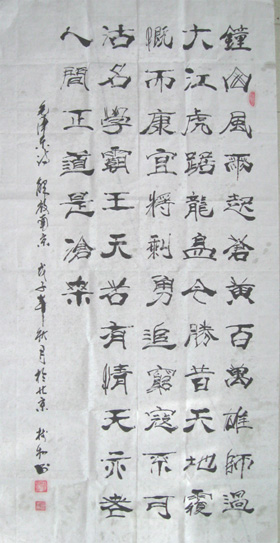 鐘山風雨起蒼黃百萬雄師過
大江虎踞龍盘今勝昔天地覆
慨而康宜將剩勇追窮寇不可
沽名學霸王天若有情天亦老
人間正道是滄桑
毛澤東詩 解放南京 戊子年秋月於北京 書